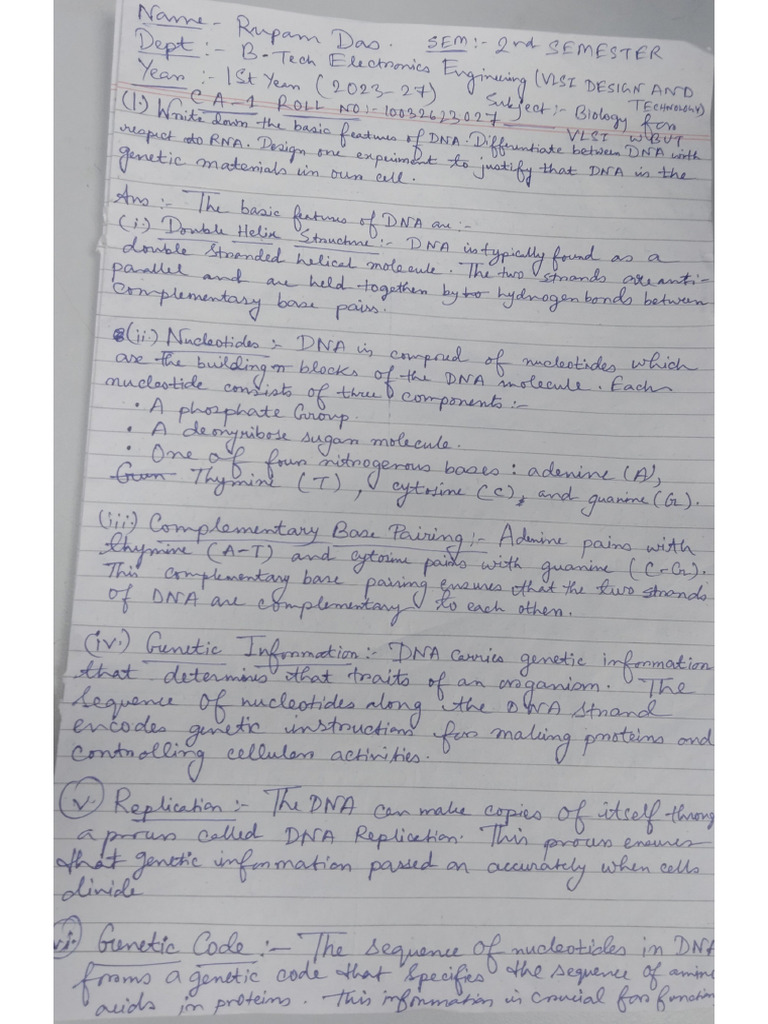 Name - Rupam Das. SEM:- 2nd SEMESTER
Dept :- B-Tech Electronics Engineering (VLSI DESIGN AND TECHNOLOGY)
Year :- 1St Year (2023-27) Subject:- Biology for
CA-1 ROLL NO:- 10032623027 VLSI WBUT
(1.) Write down the basic features of DNA. Differentiate between DNA with
respect to RNA. Design one experiment to justify that DNA is the
genetic materials in our cell.
Ans :- The basic features of DNA are :-
(i.) Double Helix Structure:- DNA is typically found as a
double stranded helical molecule. The two strands are anti-
parallel and are held together by hydrogen bonds between
complementary base pairs.
(ii.) Nucleotides :- DNA is composed of nucleotides which
are the building blocks of the DNA molecule. Each
nucleotide consists of three components :-
• A phosphate Group.
• A deoxyribose sugar molecule.
• One of four nitrogenous bases : adenine (A),
Thymine (T), cytosine (C), and guanine (G).
(iii.) Complementary Base Pairing :- Adenine pairs with
thymine (A-T) and cytosine pairs with guanine (C-G).
This complementary base pairing ensures that the two strands
of DNA are complementary to each other.
(iv.) Genetic Information:- DNA carries genetic information
that determines that traits of an organism. The
sequence of nucleotides along the DNA strand
encodes genetic instruction for making proteins and
controlling cellular activities.
(v.) Replication :- The DNA can make copies of itself throug
a process called DNA Replication. This process ensures
that genetic information passed on accurately when cells
divide
vi. Genetic Code :- The sequence of nucleotides in DNA
forms a genetic code that specifies the sequence of amino
acids in proteins. This information is crucial for function